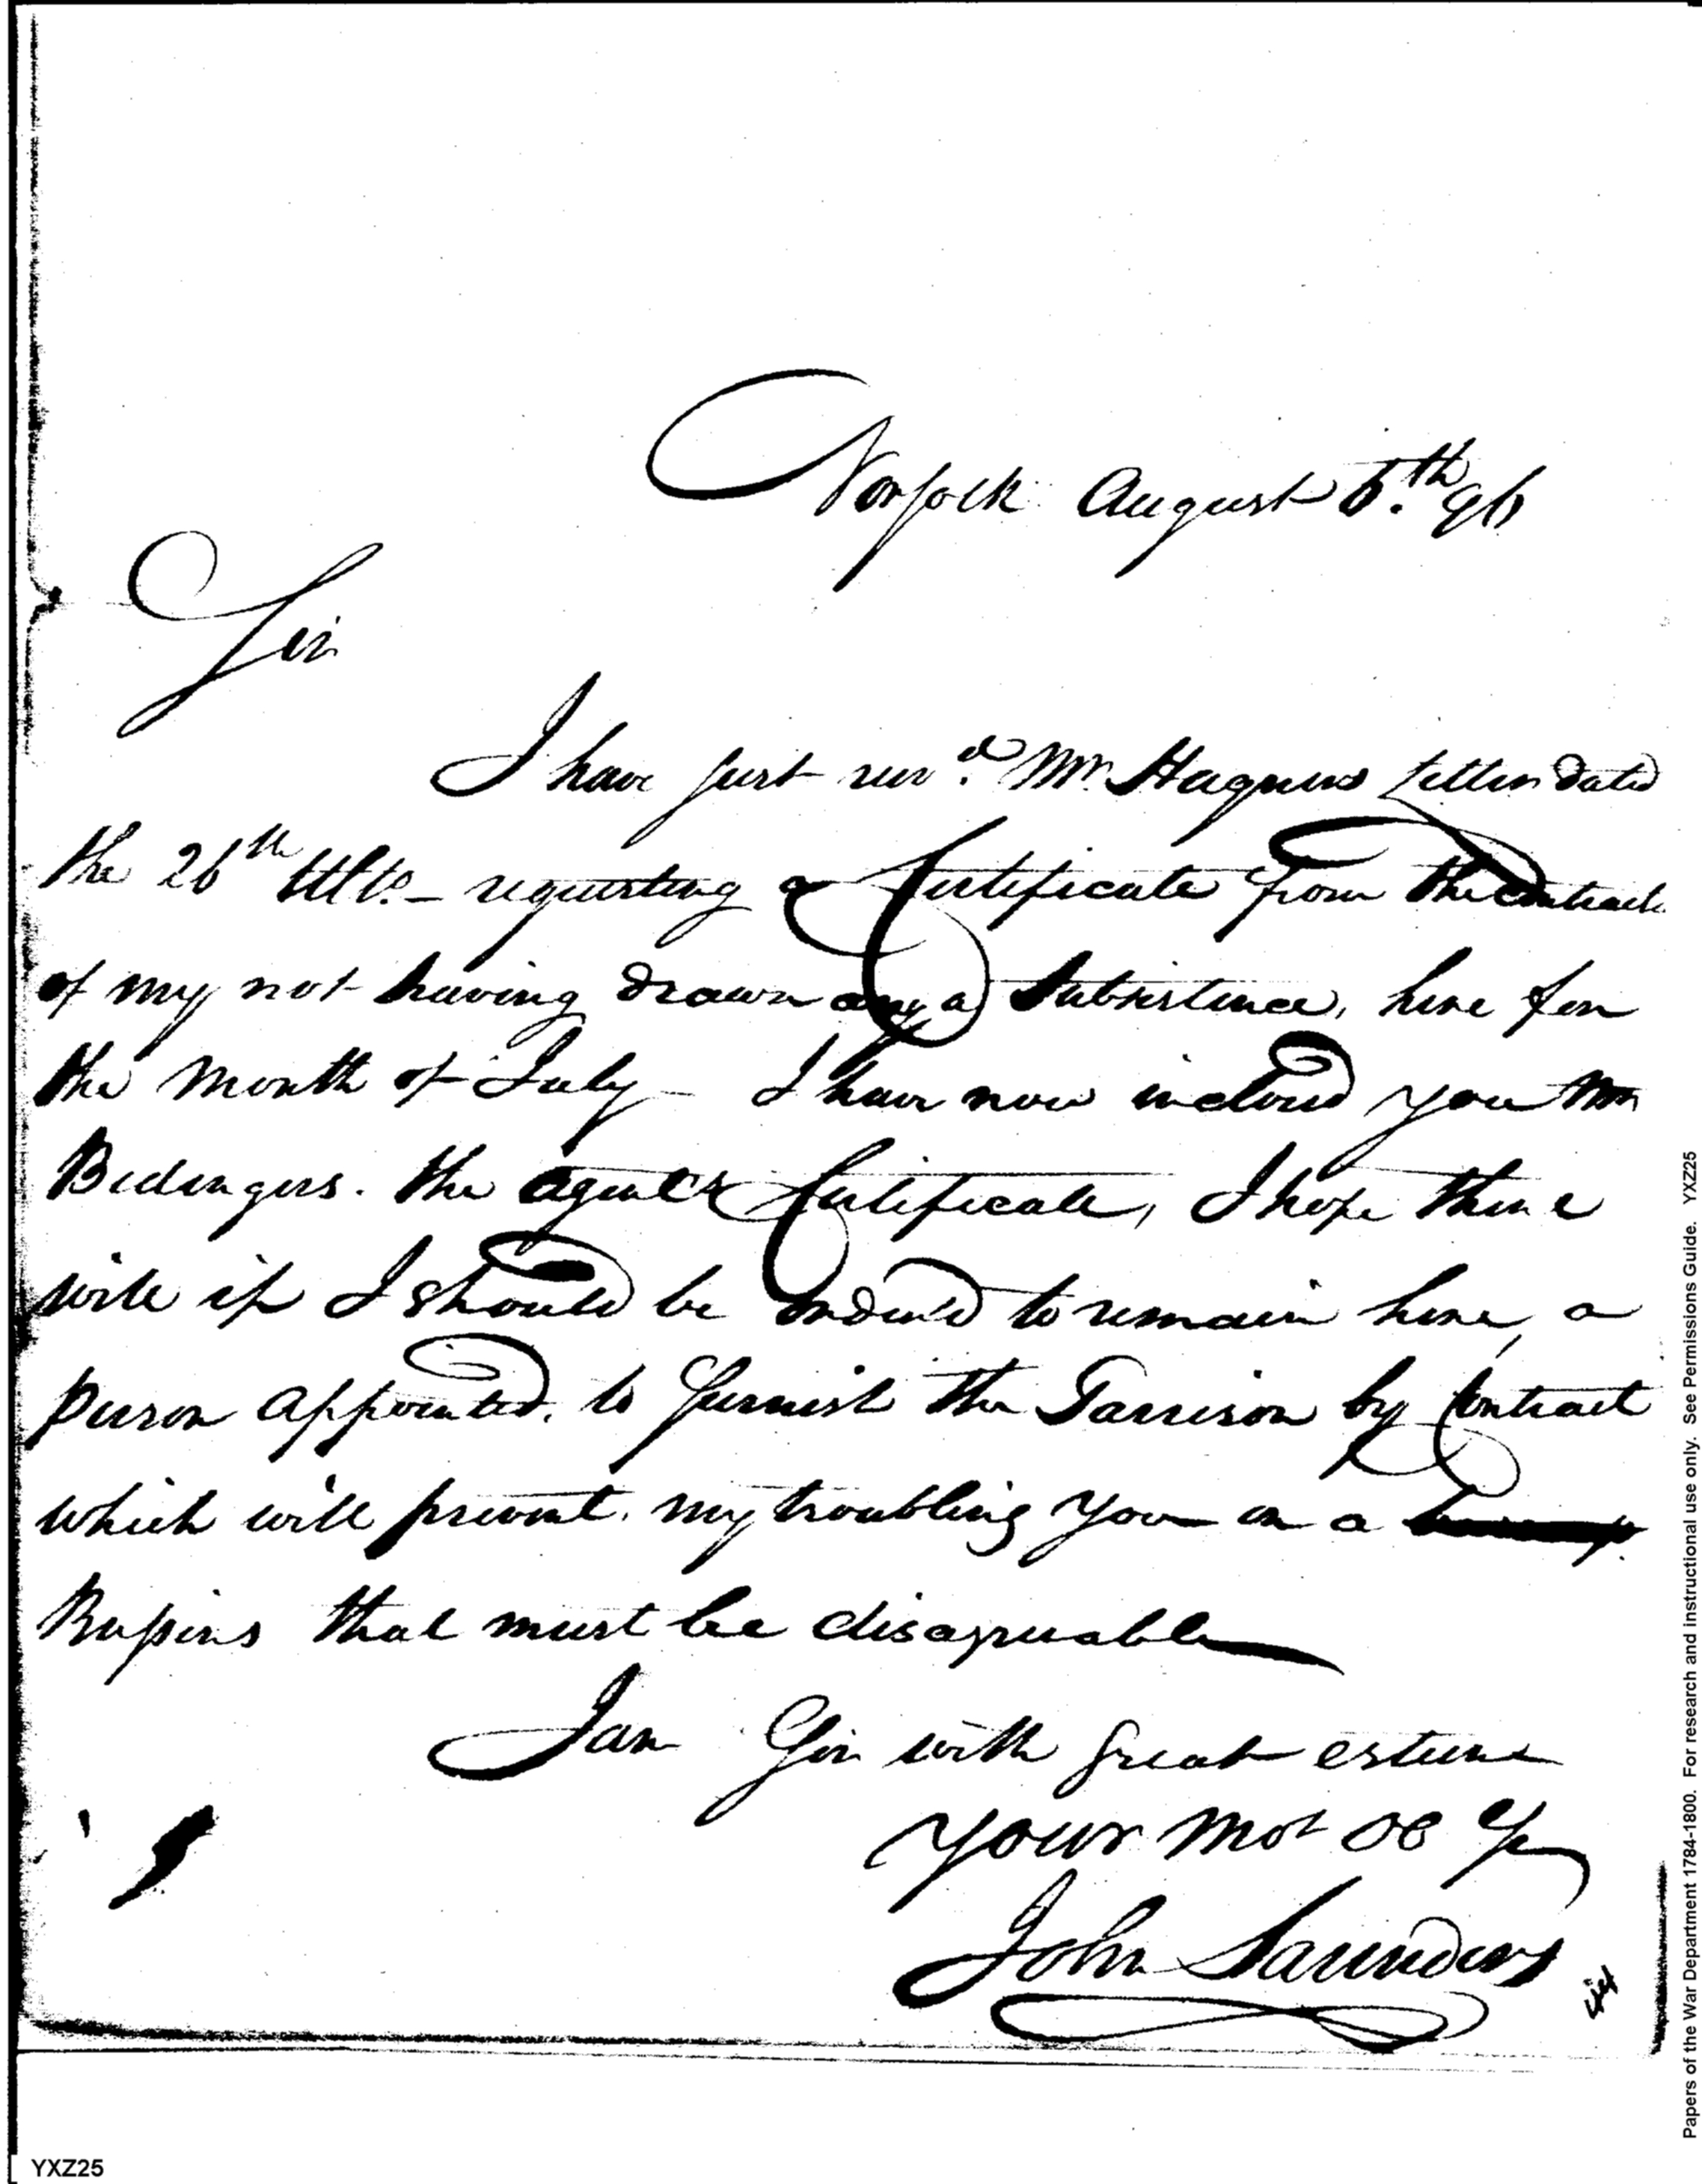 Norfolk August 6.th 96
Sir
I have just recv.d Mr. Hagners letter dated
the 26th Ulto. – requesting a Certificate from the Contract.
of my not having drawn any a Subsistence, here for
the Month of July – I have now inclosed you Mr
Bedingers. the agents Certificate, I hope there
will if I should be ordered to remain here, a
person appointed, to furnish the Garrison by Contract
which will prevent, my troubling you on a
Business that must be disagreeable
I am Sir with great esteem
Your Mot Ob
John Saunders
44
Papers of the War Department 1784-1800. For research and instructional use only. See Permissions Guide. YXZ25
YXZ25